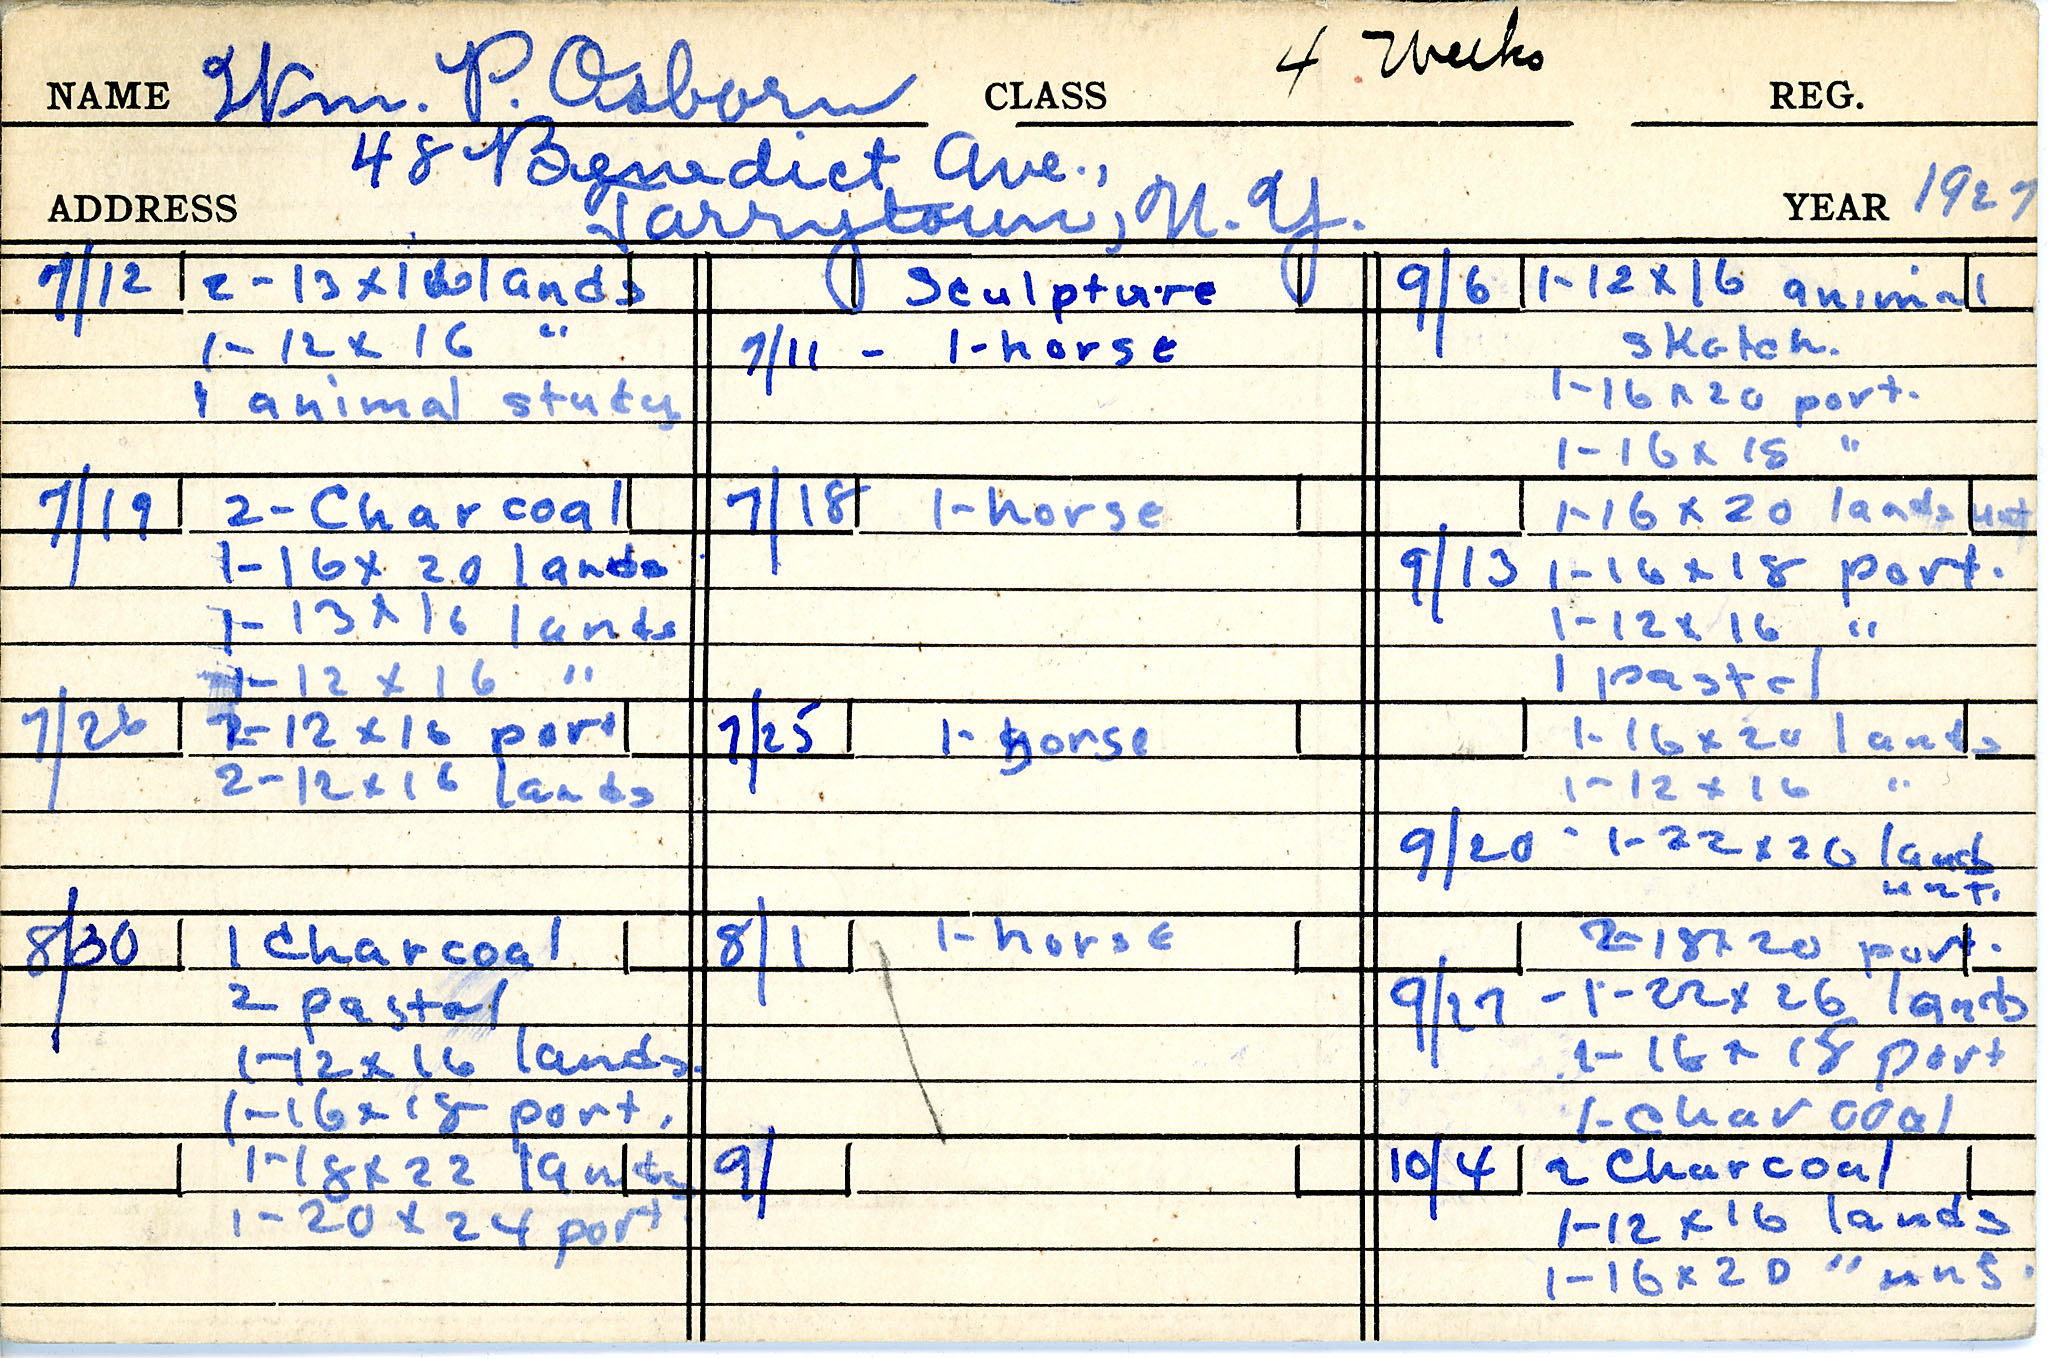 NAME Wm. P. Osborn CLASS 4 Weeks REG.
48 Benedict Ave.,
ADDRESS Tarrytown, N.Y. YEAR 1927
7/12 2-13x16 lands
1-12x16 "
1 animal study
7/19 2-Charcoal
1-16x20 lands
1-13x16 lands
1-12x16 "
7/26 2-12x16 port
2-12x16 lands
8/30 1 Charcoal
2 pastel
1-12x16 lands.
1-16x18 port.
1-18x22 lands
1-20x24 port
Sculpture
7/11 - 1-horse
7/18 1-horse
7/25 1-horse
8/1 1-horse
9/
9/6 1-12x16 animal
sketch.
1-16x20 port.
1-16x18 "
1-16x20 lands unt
9/13 1-16x18 port.
1-12x16 "
1 pastel
1-16x20 lands
1-12x16 "
9/20 - 1-22x26 lands
unt.
2-18x20 port.
9/27 - 1-22x26 lands
1-16x18 port
1-Charcoal
10/4 2 Charcoal
1-12x16 lands
1-16x20 " uns.